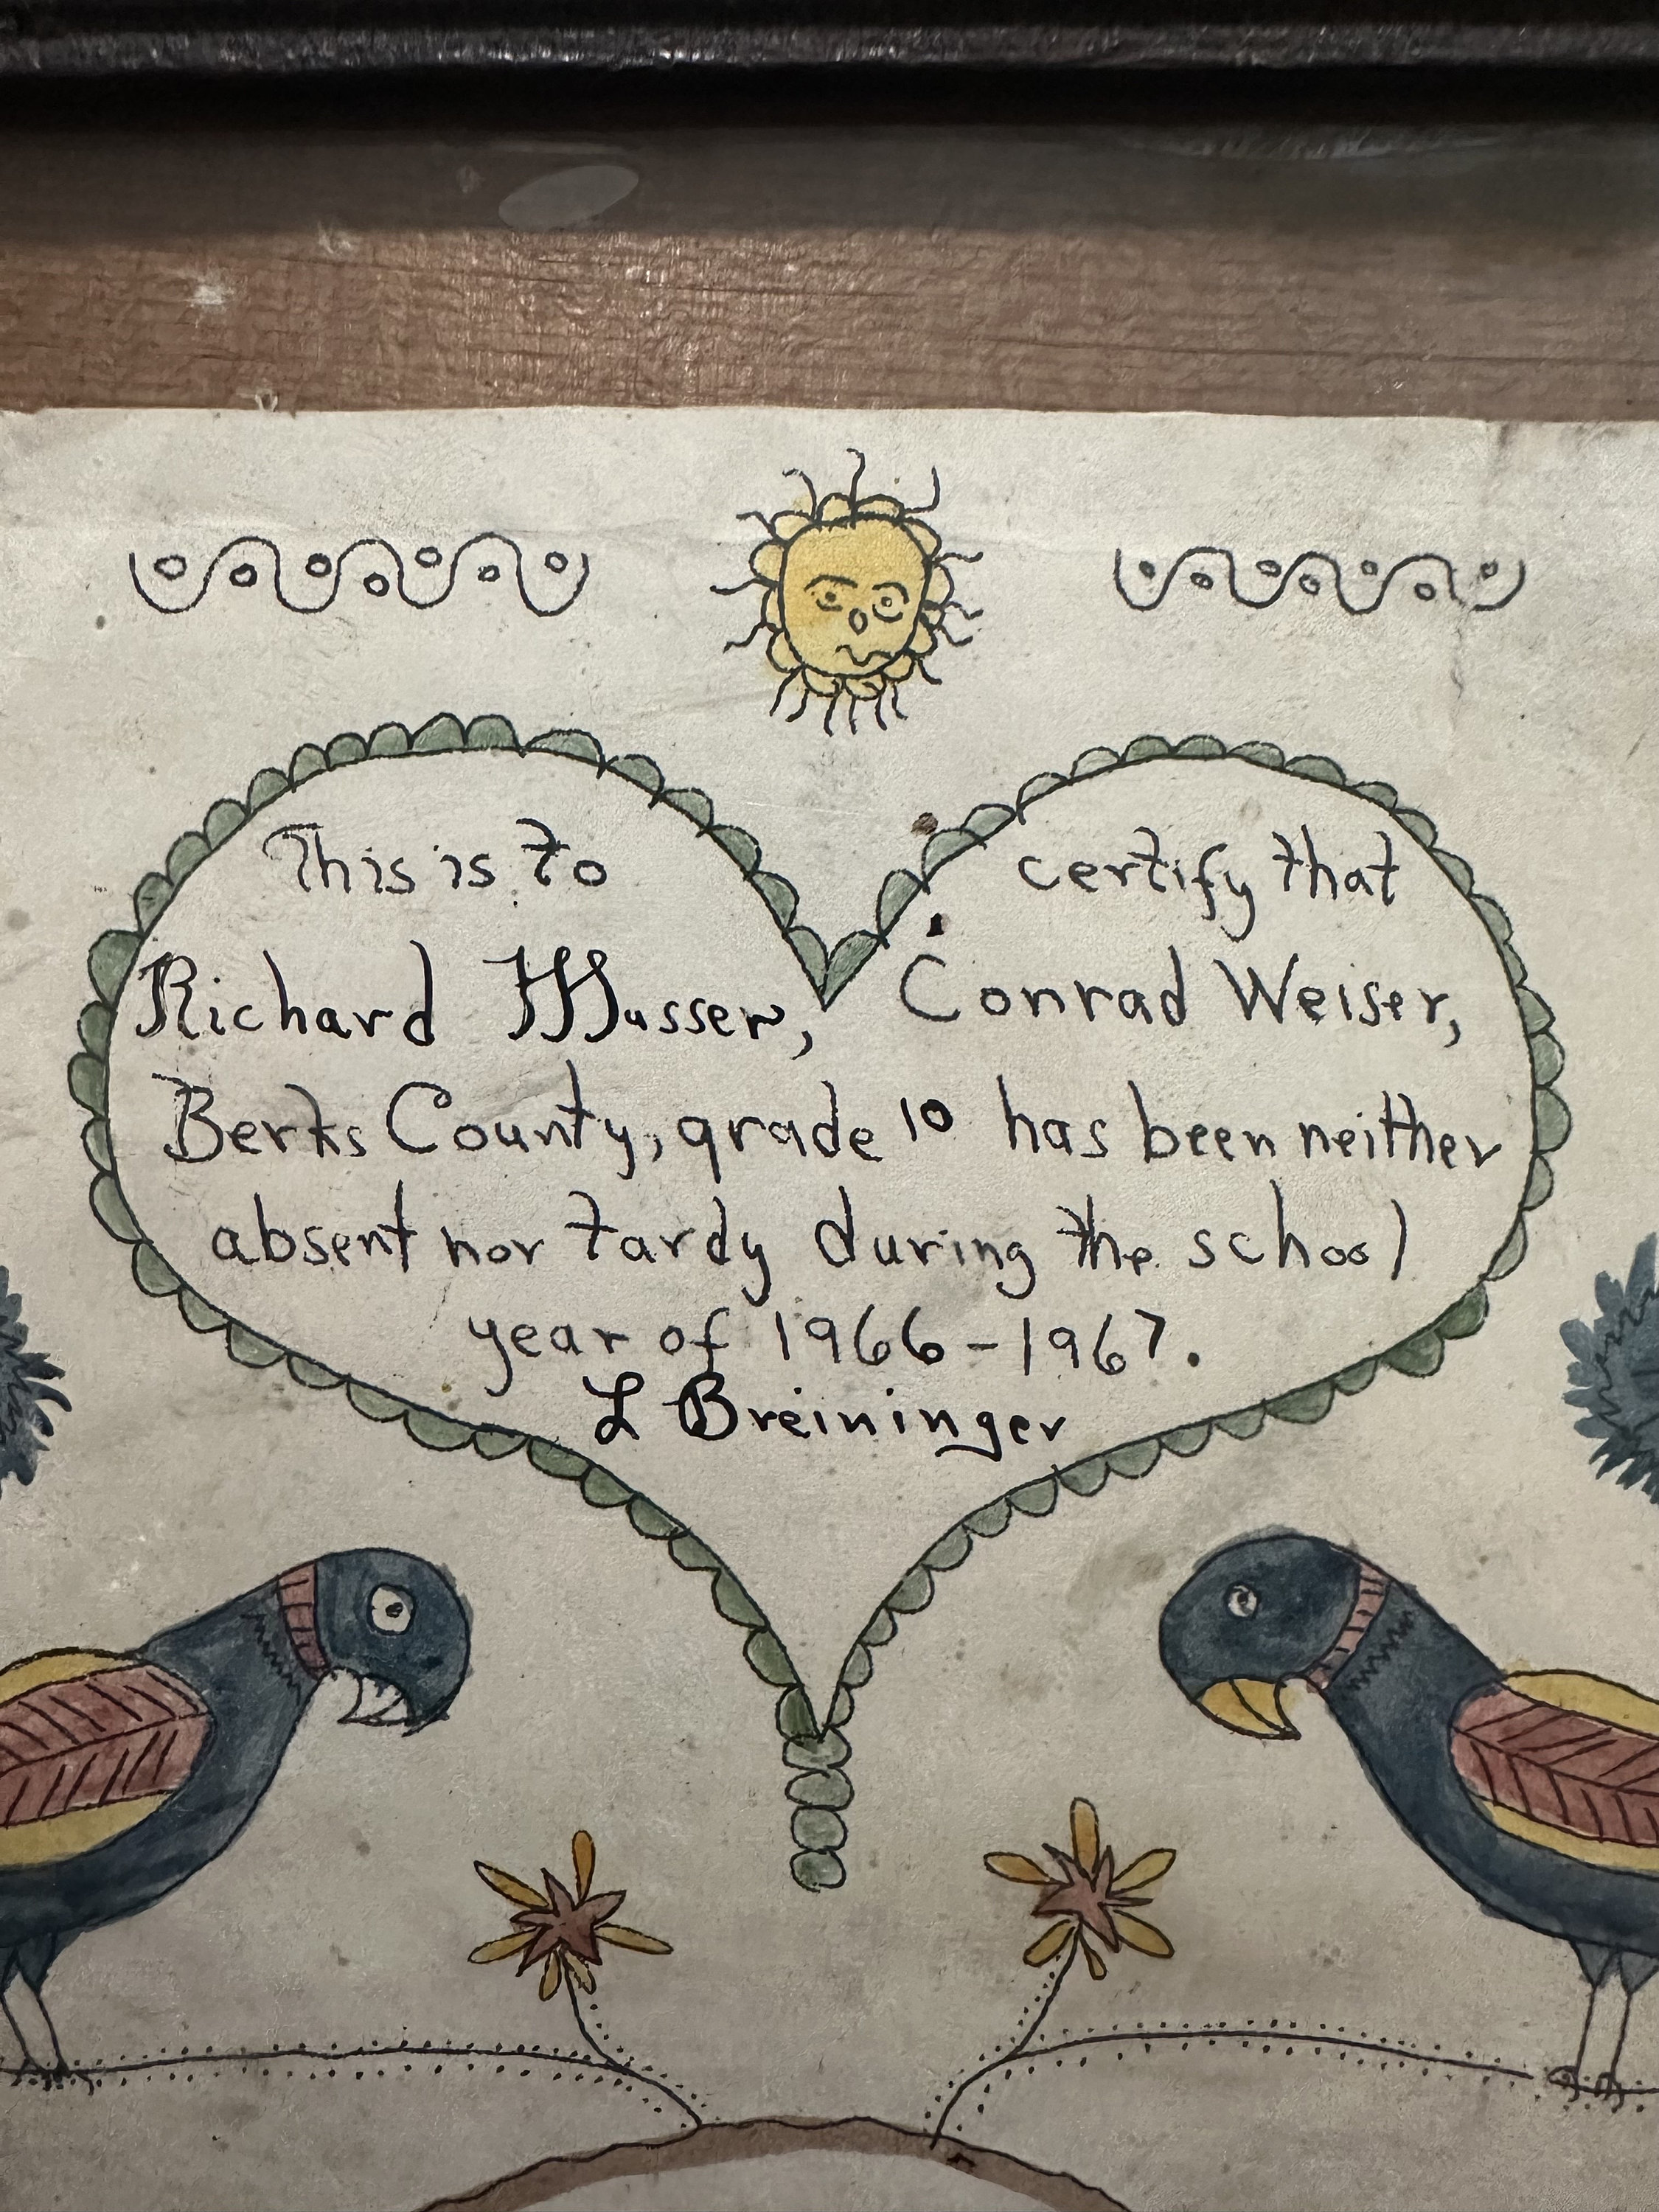 This is to certify that
Richard Musser, Conrad Weiser,
Berks County, grade 10 has been neither
absent nor tardy during the school
year of 1966-1967.
L Breininger